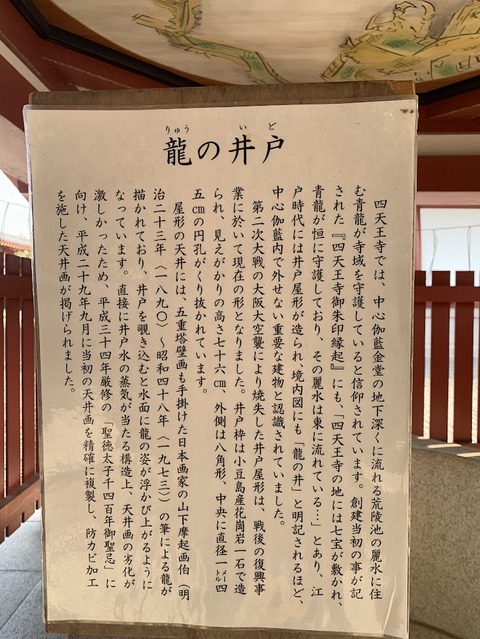 りゅう
い ど
龍の井戸
四天王寺では、中心伽藍金堂の地下深くに流れる荒陵池の麗水に住
む青龍が寺域を守護していると信仰されています。創建当初の事が記
された『四天王寺御朱印縁起』にも、「四天王寺の地には七宝が敷かれ、
青龍が恒に守護しており、その麗水は東に流れている…」とあり、江
戸時代には井戸屋形が造られ、境内図にも「龍の井」と明記されるほど、
中心伽藍内で外せない重要な建物と認識されていました。
第二次大戦の大阪大空襲により焼失した井戸屋形は、戦後の復興事
業に於いて現在の形となりました。井戸枠は小豆島産花崗岩一石で造
られ、見えがかりの高さ七十六㎝、外側は八角形、中央に直径一㍍四
五㎝の円孔がくり抜かれています。
屋形の天井には、五重塔壁画も手掛けた日本画家の山下摩起画伯（明
治二十三年（一八九〇）～昭和四十八年（一九七三）の筆による龍が
描かれており、井戸を覗き込むと水面に龍の姿が浮かび上がるように
なっています。直接に井戸水の蒸気が当たる構造上、天井画の劣化が
激しかったため、平成三十四年厳修の「聖徳太子千四百年御聖忌」に
向け、平成二十九年九月に当初の天井画を精確に複製し、防カビ加工
を施した天井画が掲げられました。